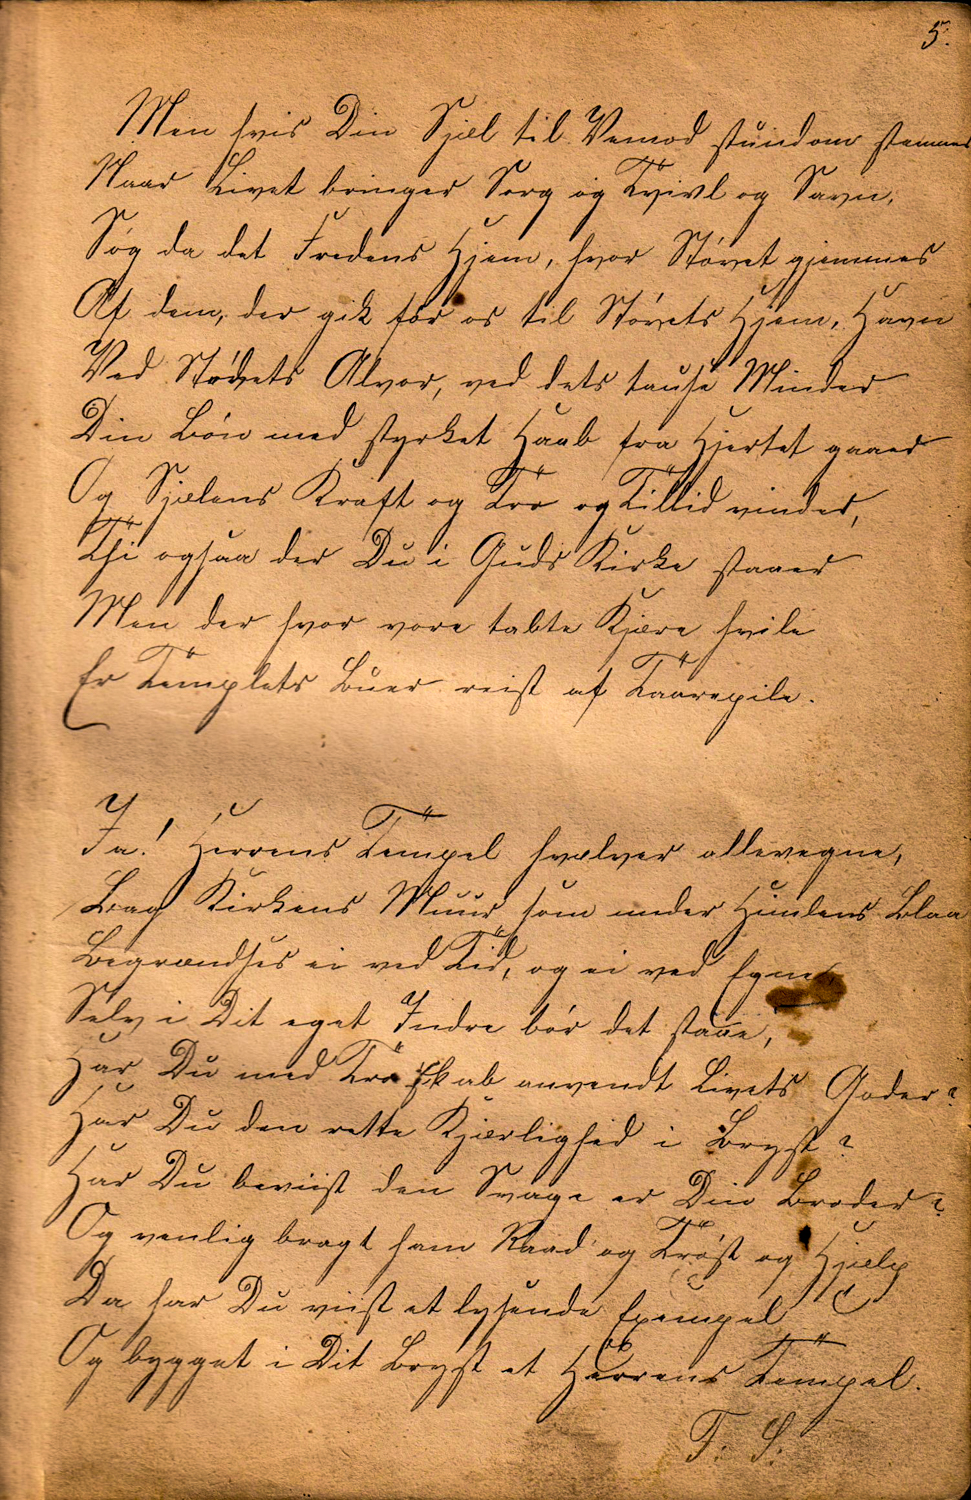 5.
Men hvis Din Sjæl til Vemod stundom stemmes
Naar Livet bringer Sorg og Tvivl og Savn,
Søg da det Fredens Hjem, hvor Støvet gjemmes
Af dem, der gik før os til Støvets Hjem, Havn
Ved Stødets Alvor, ved dets tause Minder
Din Bøn med styrket Haab fra Hjertet gaaer
Og Sjælens Kraft og Tro og Tillid vinder,
Thi ogsaa der Du i Guds Kirke staaer
Men der hvor vore tabte Kjære hvile
Er Templets Buer reist af Taarepile.
Ja! Herrens Tempel hvælver allevegne,
Bag Kirkens Muur som under Himlens Blaa
Begrændses ei ved Tid, og ei ved Egne
Selv i Dit eget Indre bør det staae,
Har Du med Troskab anvendt Livets Goder?
Har Du den rette Kjærlighed i Bryst?
Har Du beviist den Svage er Din Broder?
Og venlig bragt ham Raad og Trøst og Hjælp
Da har Du viist et lysende Exempel
Og bygget i Dit Bryst et Herrens Tempel.
F. S.